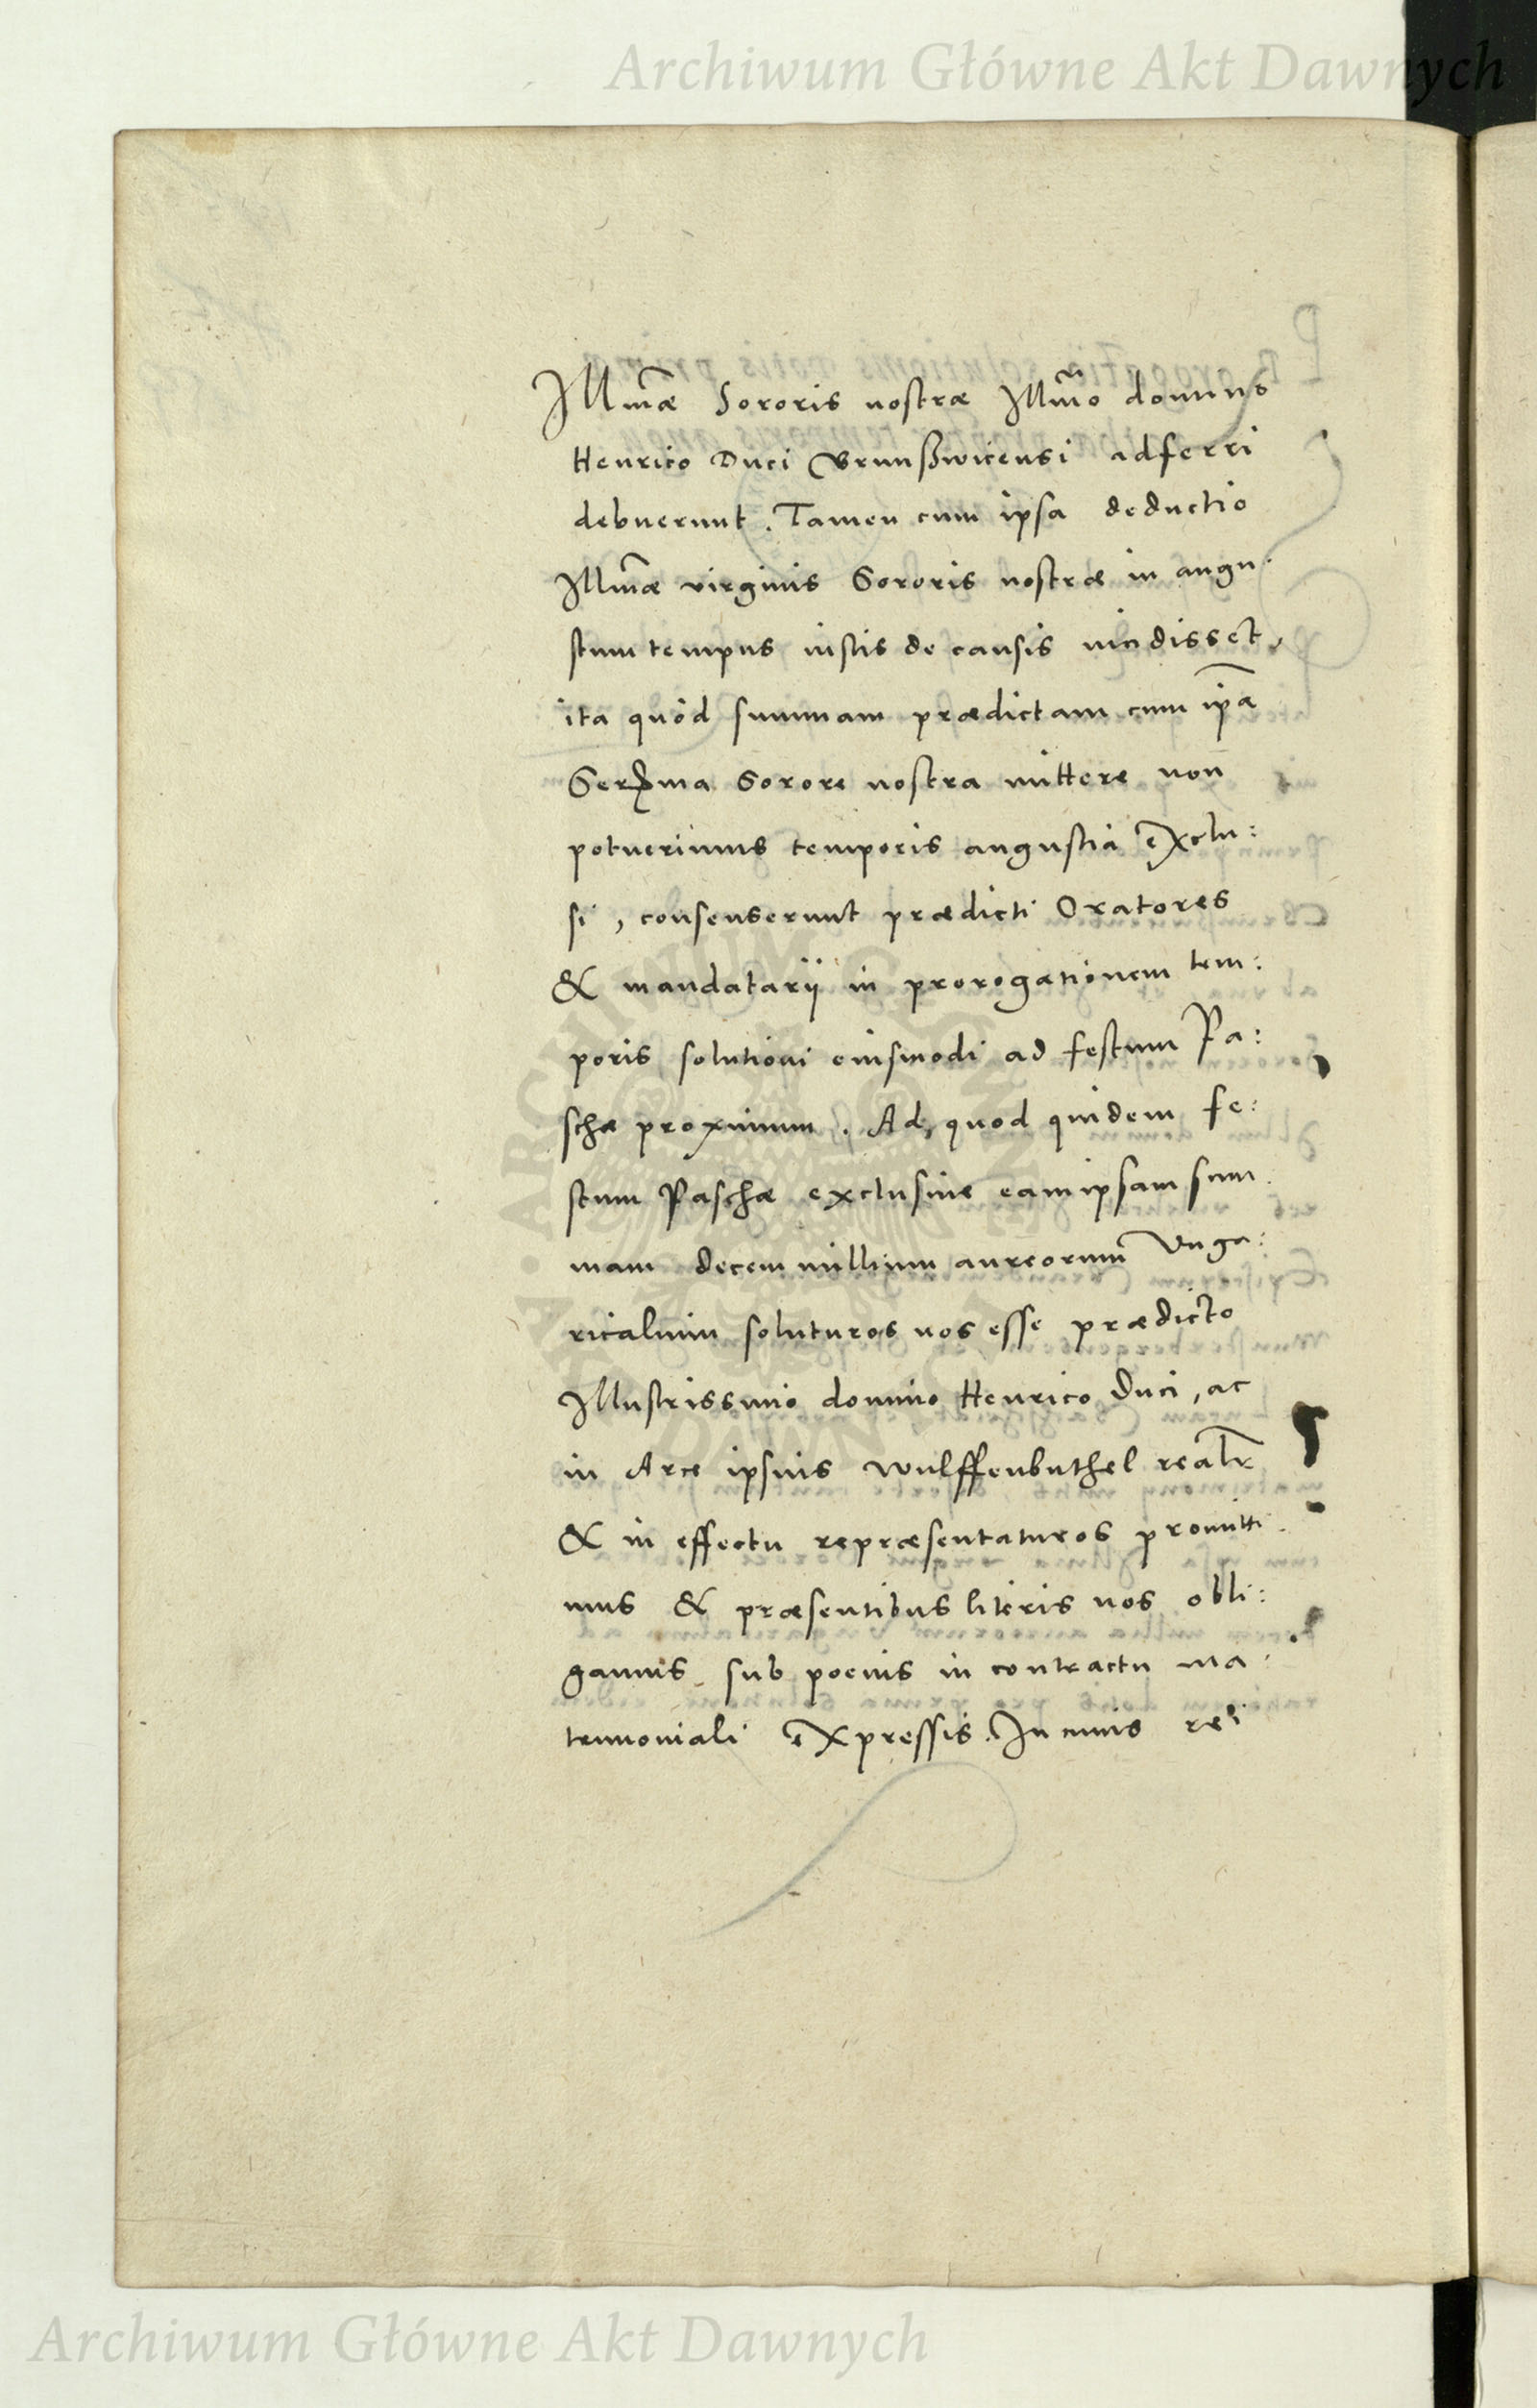 Archiwum Główne Akt Dawnych
Illmæ Sororis nostræ Illmo domino
Henrico Duci Brunßwicensi adferri
debuerunt. Tamen cum ipsa deductio
Illmæ virginis Sororis nostræ in angu:
stum tempus iustis de causis incidisset,
ita quòd summam prædictam cum ipa
Serma Sorore nostra mittere non
potuerimus temporis angustia exclu:
si, consenserunt prædicti Oratores
& mandatarij in prorogationem tem:
poris solutioni eiusmodi ad festum Pa:
schæ proximum. Ad quod quidem fe:
stum Paschæ exclusive eam ipsam sum:
mam decem millium aureorum Unga:
ricalium soluturos nos esse prædicto
Illustrissimo domino Henrico Duci, ac
in Arce ipsius Wulffenbuthel realr
& in effectu repræsentaturos promitti:
mus & præsentibus literis nos obli:
gamus sub poenis in contractu ma:
trimoniali expressis. In cuius rei
Archiwum Główne Akt Dawnych